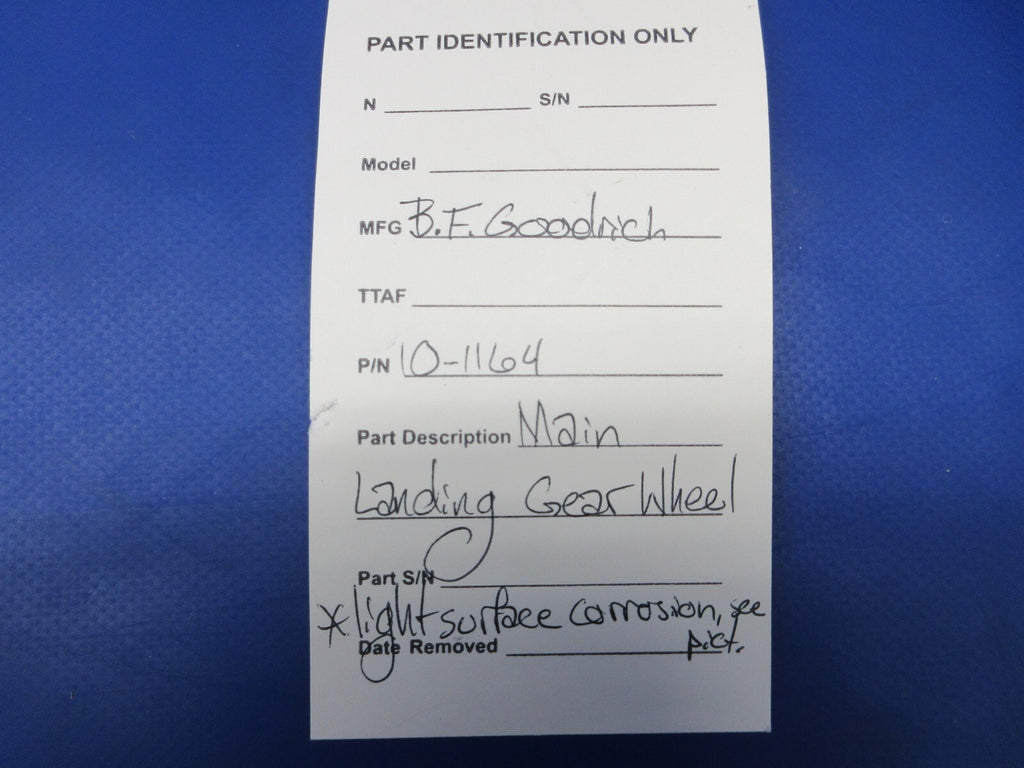 PART IDENTIFICATION ONLY
N S/N
Model
MFG B.F. Goodrich
TTAF
P/N 10-1164
Part Description Main
Landing Gear Wheel
Part S/N
* light surface corrosion, see
pict.
Date Removed